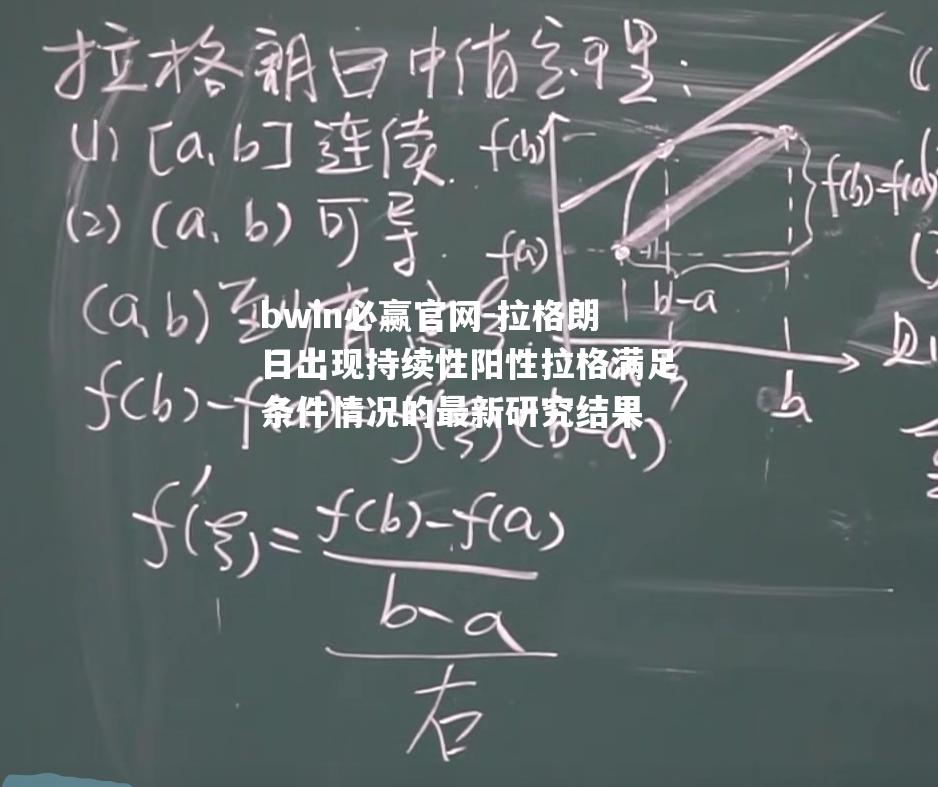 拉格朗日中值定理:
(1) [a, b] 连续.
(2) (a, b) 可导.
(a, b) 至
f(b)-f
f'(ξ)=
f(b)-f(a)
b-a
右
f(b)
f(a)
b-a
f(b)-f(a)
b
bwin必赢官网-拉格朗
日出现持续性阳性拉格满足
条件情况的最新研究结果